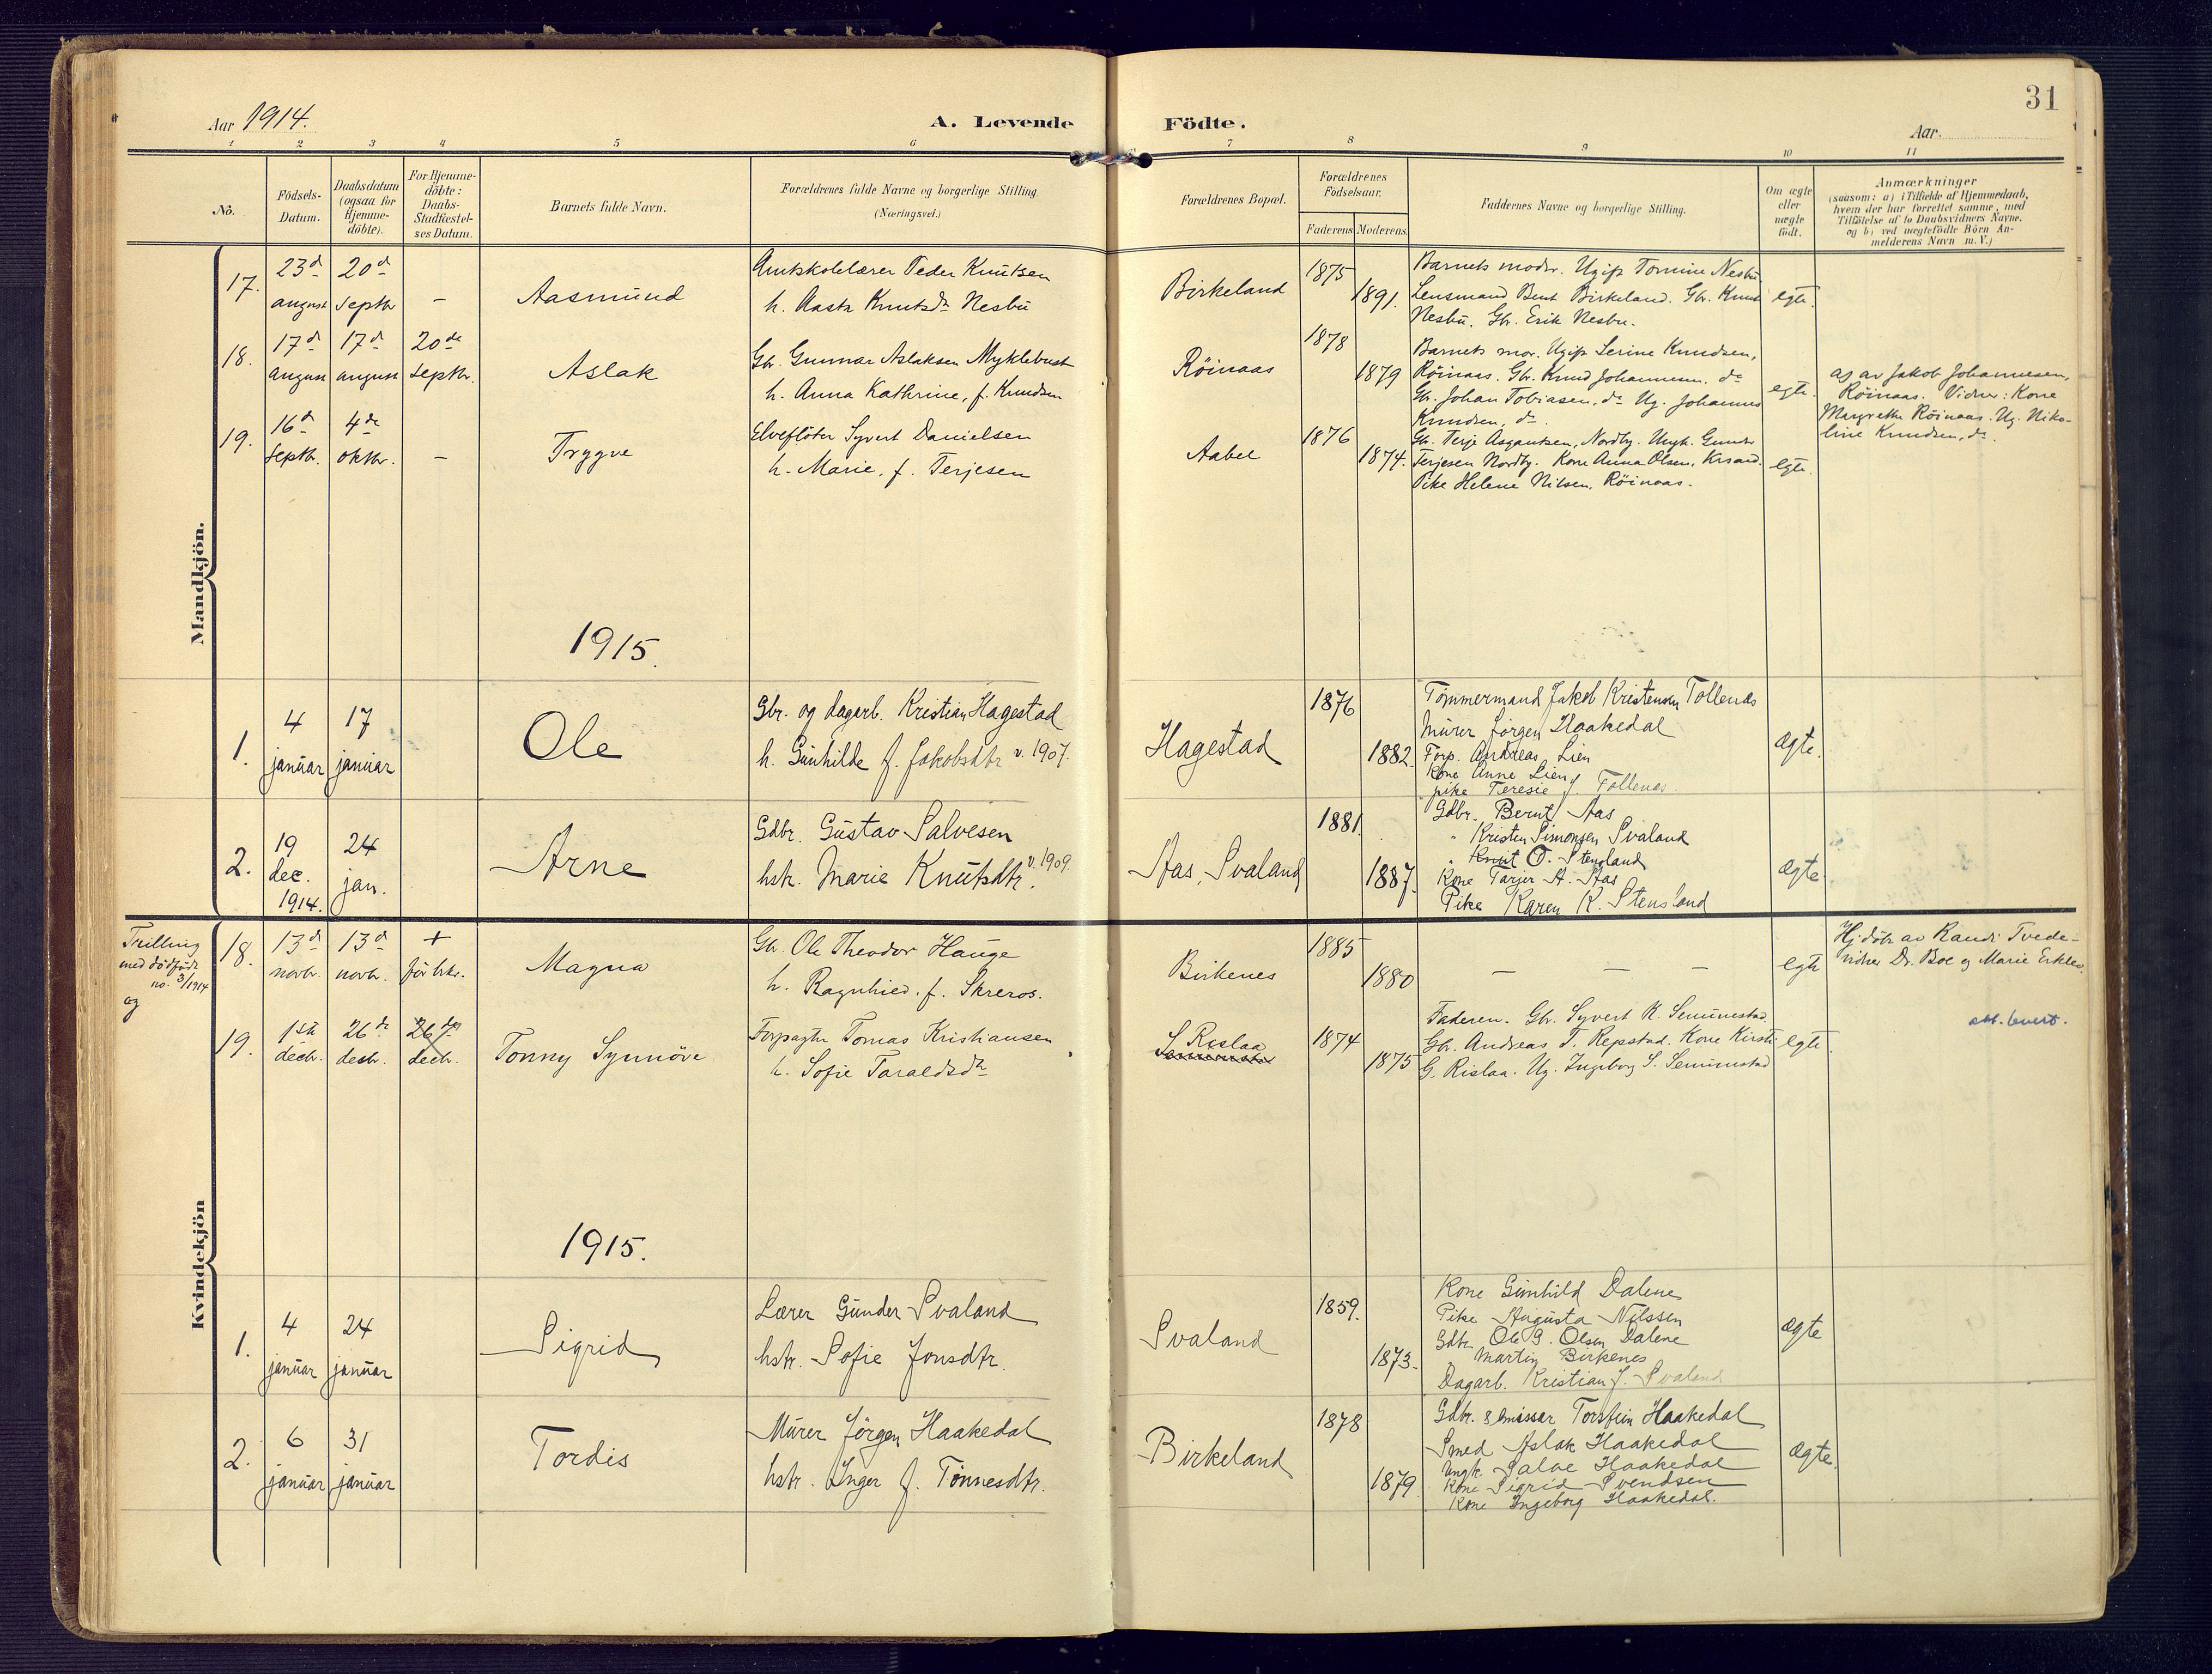 31
Aar 1914.
A. Levende Födte.
Aar
1 2 3 4 5 6 7 8 9 10 11
No.
Födsels-
Datum.
Daabsdatum
(ogsaa for
Hjemme-
döbte).
For Hjemme-
döbte:
Daabs-
Stadfæstel-
ses Datum.
Barnets fulde Navn.
Forældrenes fulde Navne og borgerlige Stilling.
(Næringsvei.)
Forældrenes Bopæl.
Forældrenes
Födselsaar.
Faderens Moderens.
Faddernes Navne og borgerlige Stilling.
Om ægte
eller
uægte
födt.
Anmærkninger
(saasom: a) i Tilfælde af Hjemmedaab,
hvem der har forrettet samme, med
Tilföielse af to Daabsvidners Navne,
og b) ved uægtefödte Börn An-
melderens Navn m. V.)
Mandkjön.
17.
23d
august
20d
septbr
–
Aasmund
Amtskolelærer Peder Knutsen
h. Aasta Knutsdr Nesbu
Birkeland
1875
1891.
Barnets moder. Ugift Tomine Nesbu
Lensmand Bent Birkeland. Gbr. Knut
Nesbu. Gbr. Erik Nesbu.
egte.
18.
17d
august
17d
august
20de
septbr.
Aslak
Gbr. Gunnar Aslaksen Myklebust
h. Anna Kathrine, f. Knudsen
Röinaas
1878
1879
Barnets mor. Ugift Serine Knudsen,
Röinaas. Gbr. Knud Johannesen. do
Gbr. Johan Tobiasen, do Ug. Johannes
Knudsen, do.
egte.
ag av Jakob Johannesen,
Röinaas. Vidner: Kone
Margrethe Röinaas. Ug. Niko-
line Knudsen, do.
19.
16d
septbr.
4de
oktbr.
–
Trygve
Elveflöter Syvert Danielsen
h. Marie, f. Terjesen
Aabel
1876
1874.
Gbr. Terje Asgautsen, Nordby. Ungk. Gunder
Terjesen Nordby. Kone Anna Olsen, Krsand.
Pike Helene Nilsen, Röinaas.
egte.
1915.
1.
4
januar
17
januar
Ole
Gbr. og dagarb. Kristian Hagestad
h. Gunhilde f. Jakobsdtr v. 1907.
Hagestad
1876
1882.
Tömmermand Jakob Kristensen Tollenæs
Murer Jörgen Haakedal
Forp. Andreas Lien
Kone Anne Lien
pike Teresie J. Tollenæs.
ægte.
2.
19
dec.
1914.
24
jan.
Arne
Gdbr. Gustav Salvesen
hstr. Marie Knutsdtr. v. 1909.
Aas, Svaland
1881.
1887.
Gdbr. Bernt Aas
" Kristen Simonsen Svaland
" Knut O. Stensland
Kone Tarjer A. Aas
Pike Karen K. Stensland
ægte
Kvindekjön
Trilling
med dödfödt
no. 3/1914
og
18.
13d
novbr.
13d
novbr.
+
för bekr.
Magna
Gbr. Ole Theodor Hauge
h. Ragnhied. f. Skreros.
Birkenes
1885
1880
– – –
egte
Hj.döbt av Randi Tvede-
vidner Dr. Boe og Marie Erklev.
19.
1ste
decbr.
26de
decbr.
26de
decbr.
Tonny Synnöve
Forpagter Tomas Kristiansen
h. Sofie Taraldsdr
S. Rislaa
1874
1875
Faderen. Gbr. Syvert K. Senumstad
Gbr. Andreas T. Repstad. Kone Kirsti
G. Rislaa. Ug. Ingeborg S. Senumstad
egte.
att. levert.
1915.
1.
4
januar
24
januar
Sigrid
Lærer Gunder Svaland
hstr. Sofie Jonsdtr.
Svaland
1859.
1873.
Kone Gunhild Dalene
Pike Augusta Nilssen
Gdbr. Ole G. Olsen Dalene
Martin Birkenes
Dagarb. Kristian J. Svaland
ægte
2.
6
januar
31
januar
Tordis
Murer Jörgen Haakedal
hstr. Inger f. Tönnesdtr.
Birkeland
1878
1879
Gdbr. & emissær Torstein Haakedal
Smed Aslak Haakedal
Ungk. Salve Haakedal
Kone Sigrid Svendsen
Kone Ingeborg Haakedal.
ægte.